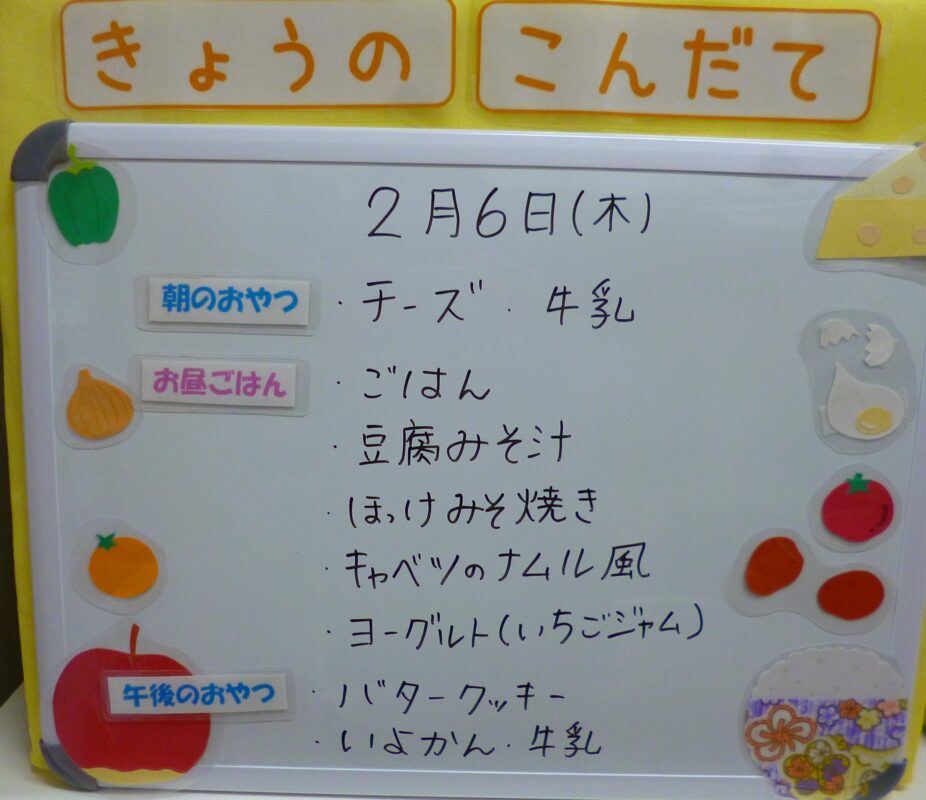 きょうの こんだて
2月6日(木)
朝のおやつ ・チーズ・牛乳
お昼ごはん ・ごはん
・豆腐みそ汁
・ほっけみそ焼き
・キャベツのナムル風
・ヨーグルト(いちごジャム)
午後のおやつ ・バタークッキー
・いよかん・牛乳